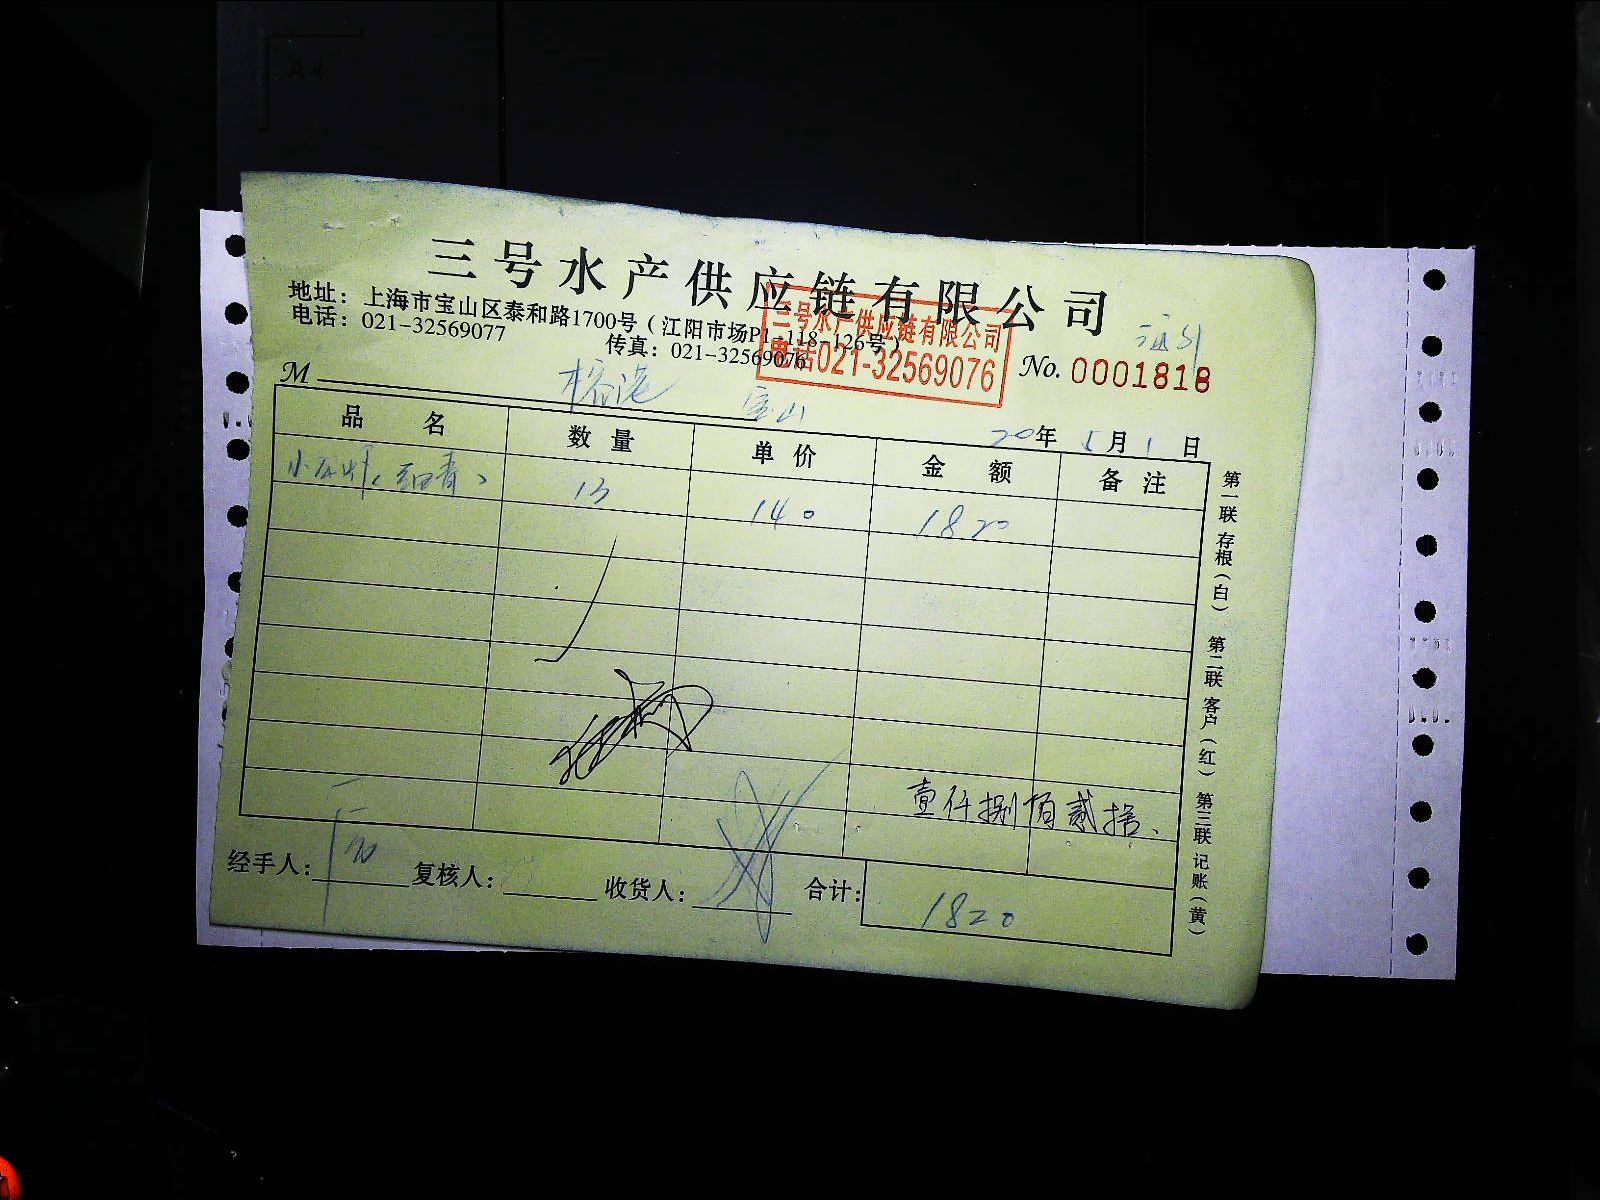 三号水产供应链有限公司
地址：上海市宝山区泰和路1700号（江阳市场P1-118-126号）
电话：021-32569077 传真：021-32569076
三号水产供应链有限公司
电话021-32569076
No. 0001818
M 榕港 宝山
20年 5月 1日
品名 数量 单价 金额 备注
13 140 1820
壹仟捌佰贰拾、
经手人： 复核人： 收货人： 合计： 1820
第一联 存根（白） 第二联 客户（红） 第三联 记账（黄）